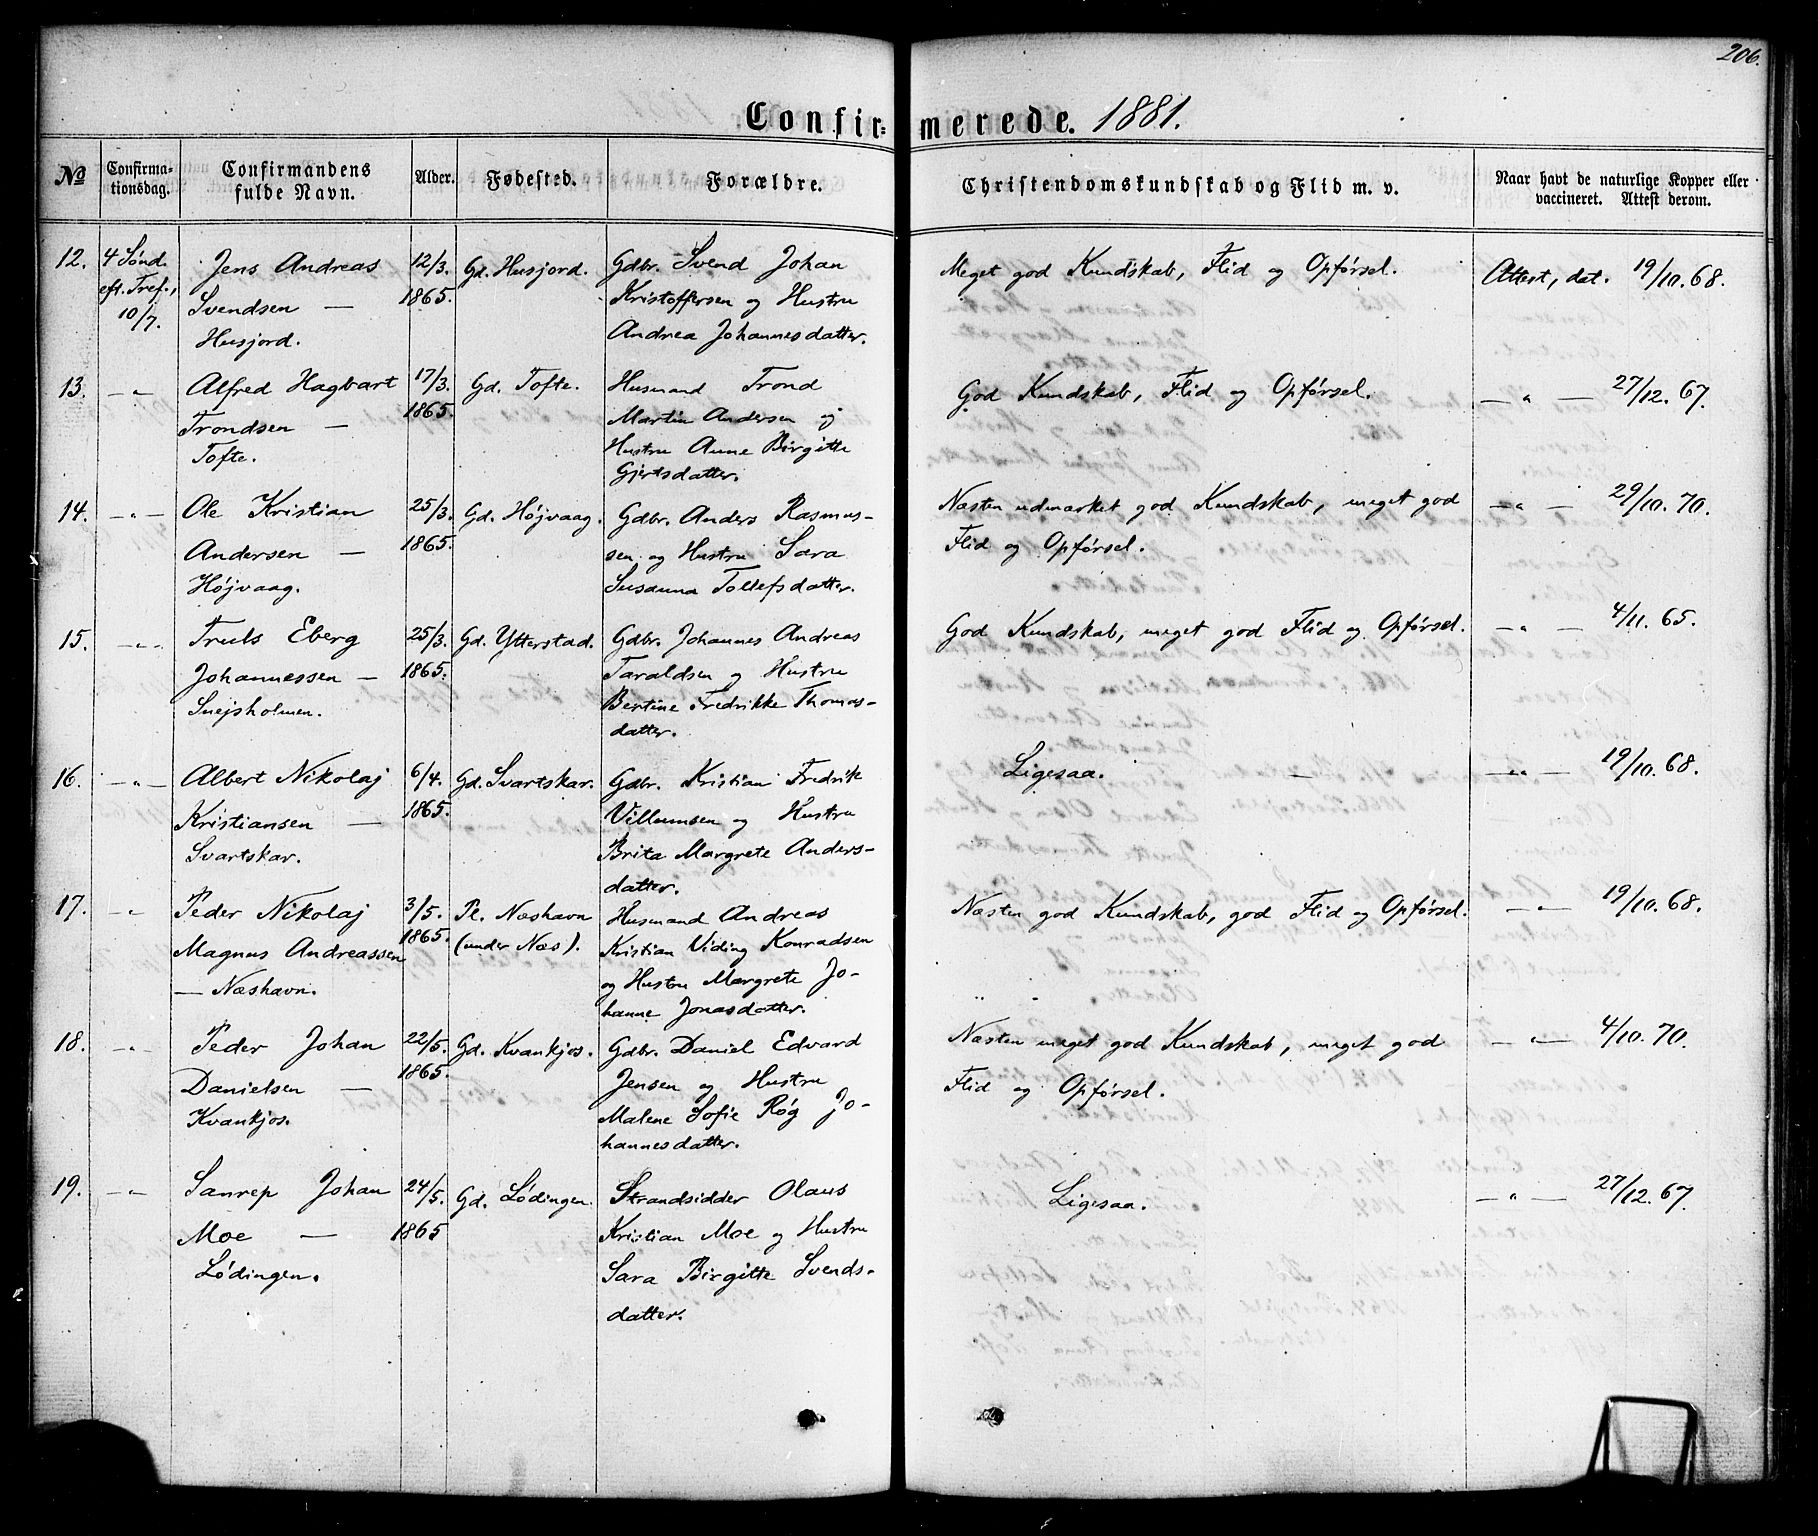 206.
Confir= merede. 1881.
№ Confirma-tionsdag. Confirmandens fulde Navn. Alder. Fødested. Forældre. Christendomskundskab og Flid m. v. Naar havt de naturlige Kopper eller vaccineret. Attest derom.
12. 4 Sønd. Jens Andreas 12/3. Gd. Husjord. Gdbr. Svend Johan Meget god Kundskab, Flid og Opførsel. Attest, dat. 19/10. 68.
eft. Tref., Svendsen — 1865. Kristoffersen og Hustru
10/7. Husjord. Andrea Johannesdatter.
13. —„— Alfred Hagbart 17/3. Gd. Tofte. Husmand Trond God Kundskab, Flid og Opførsel. —„— 27/12. 67.
Trondsen — 1865. Martin Andersen og
Tofte. Hustru Anne Birgitte
Gjertsdatter.
14. —„— Ole Kristian 25/3. Gd. Højvaag. Gdbr. Anders Rasmus- Næsten udmærket god Kundskab, meget god —„— 29/10. 70.
Andersen — 1865. sen og Hustru Sara Flid og Opførsel.
Højvaag. Susanna Tollefsdatter.
15. —„— Truls Eberg 25/3. Gd. Ytterstad. Gdbr. Johannes Andreas God Kundskab, meget god Flid og Opførsel. —„— 4/11. 65.
Johannessen — 1865. Taraldsen og Hustru
Snejsholmen. Bertine Fredrikke Thomas-
datter.
16. —„— Albert Nikolaj 6/4. Gd. Svartskar. Gdbr. Kristian Fredrik Ligesaa. —„— 19/10. 68.
Kristiansen — 1865. Villumsen og Hustru
Svartskar. Brita Margrete Anders-
datter.
17. —„— Peder Nikolaj 3/5. Pl. Næshavn Husmand Andreas Næsten god Kundskab, god Flid og Opførsel. —„— 19/10. 68.
Magnus Andreassen 1865. (under Næs). Kristian Viding Konradsen
— Næshavn. og Hustru Margrete Jo-
hanne Jonasdatter.
18. —„— Peder Johan 22/5. Gd. Kvankjos. Gdbr. Daniel Edvard Næsten meget god Kundskab, meget god —„— 4/10. 70.
Danielsen — 1865. Jensen og Hustru Flid og Opførsel.
Kvankjos. Malene Sofie Røg Jo-
hannesdatter.
19. —„— Sanrep Johan 24/5. Gd. Lødingen. Strandsidder Olaus Ligesaa. —„— 27/12. 67.
Moe — 1865 Kristian Moe og Hustru
Lødingen. Sara Birgitte Svends-
datter.